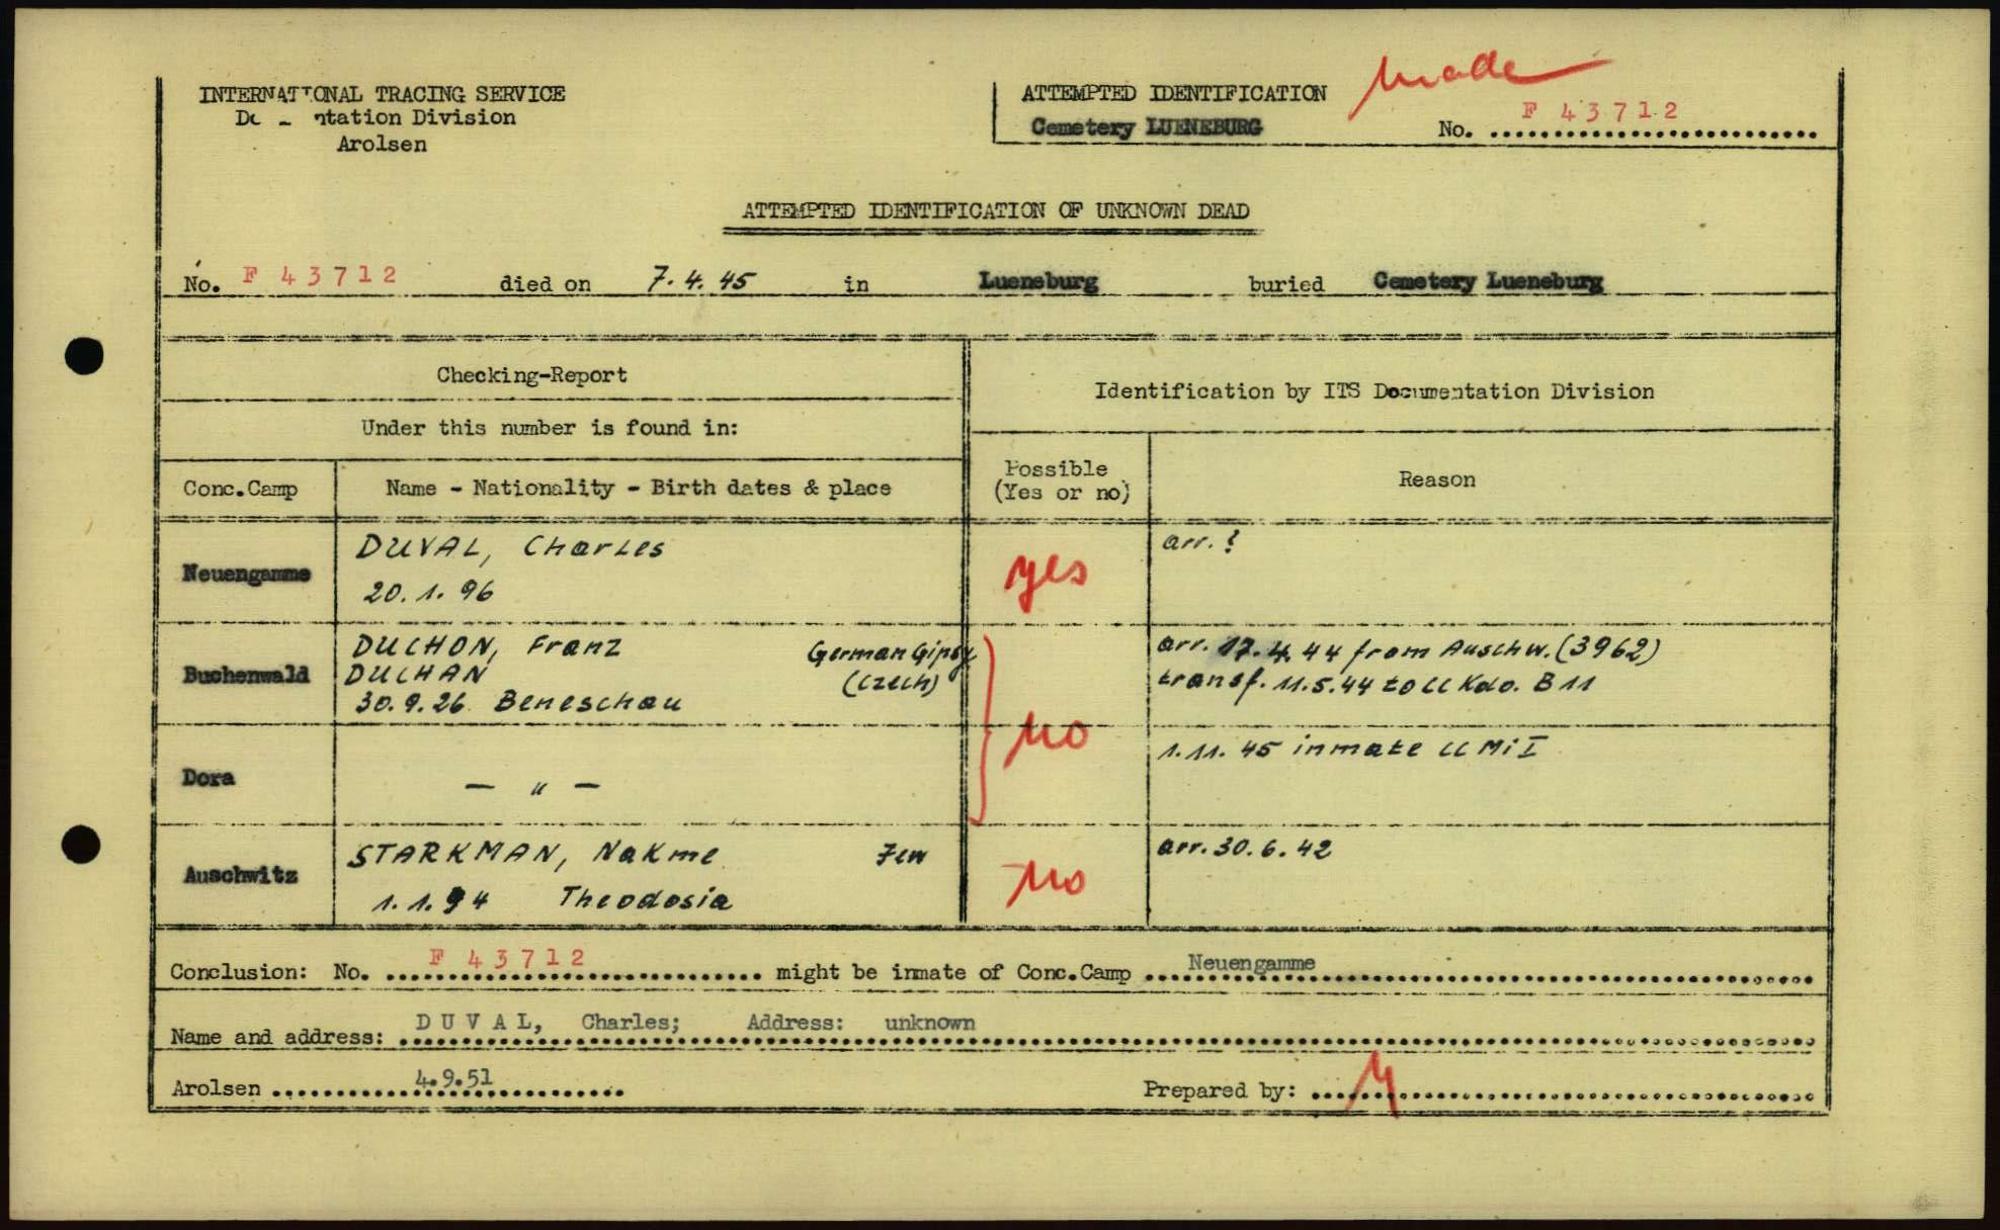 INTERNATIONAL TRACING SERVICE
Documentation Division
Arolsen
ATTEMPTED IDENTIFICATION made
Cemetery LUENEBURG No. F 43712
ATTEMPTED IDENTIFICATION OF UNKNOWN DEAD
No. F 43712 died on 7.4.45 in Lueneburg buried Cemetery Lueneburg
Checking-Report
Identification by ITS Documentation Division
Under this number is found in:
Conc.Camp
Name - Nationality - Birth dates & place
Possible
(Yes or no)
Reason
Neuengamme
DUVAL, Charles
20.1.96
yes
arr. ?
Buchenwald
DUCHON, Franz German Gipsy
DUCHAN (Czech)
30.9.26 Beneschau
arr. 17.4.44 from Auschw. (3962)
transf. 11.5.44 to CC Kdo. B11
no
Dora
— " —
1.11.45 inmate CC Mi I
Auschwitz
STARKMAN, Nakme Jew
1.1.94 Theodosia
no
arr. 30.6.42
Conclusion: No. F 43712 might be inmate of Conc.Camp Neuengamme
Name and address: DUVAL, Charles; Address: unknown
Arolsen 4.9.51
Prepared by: